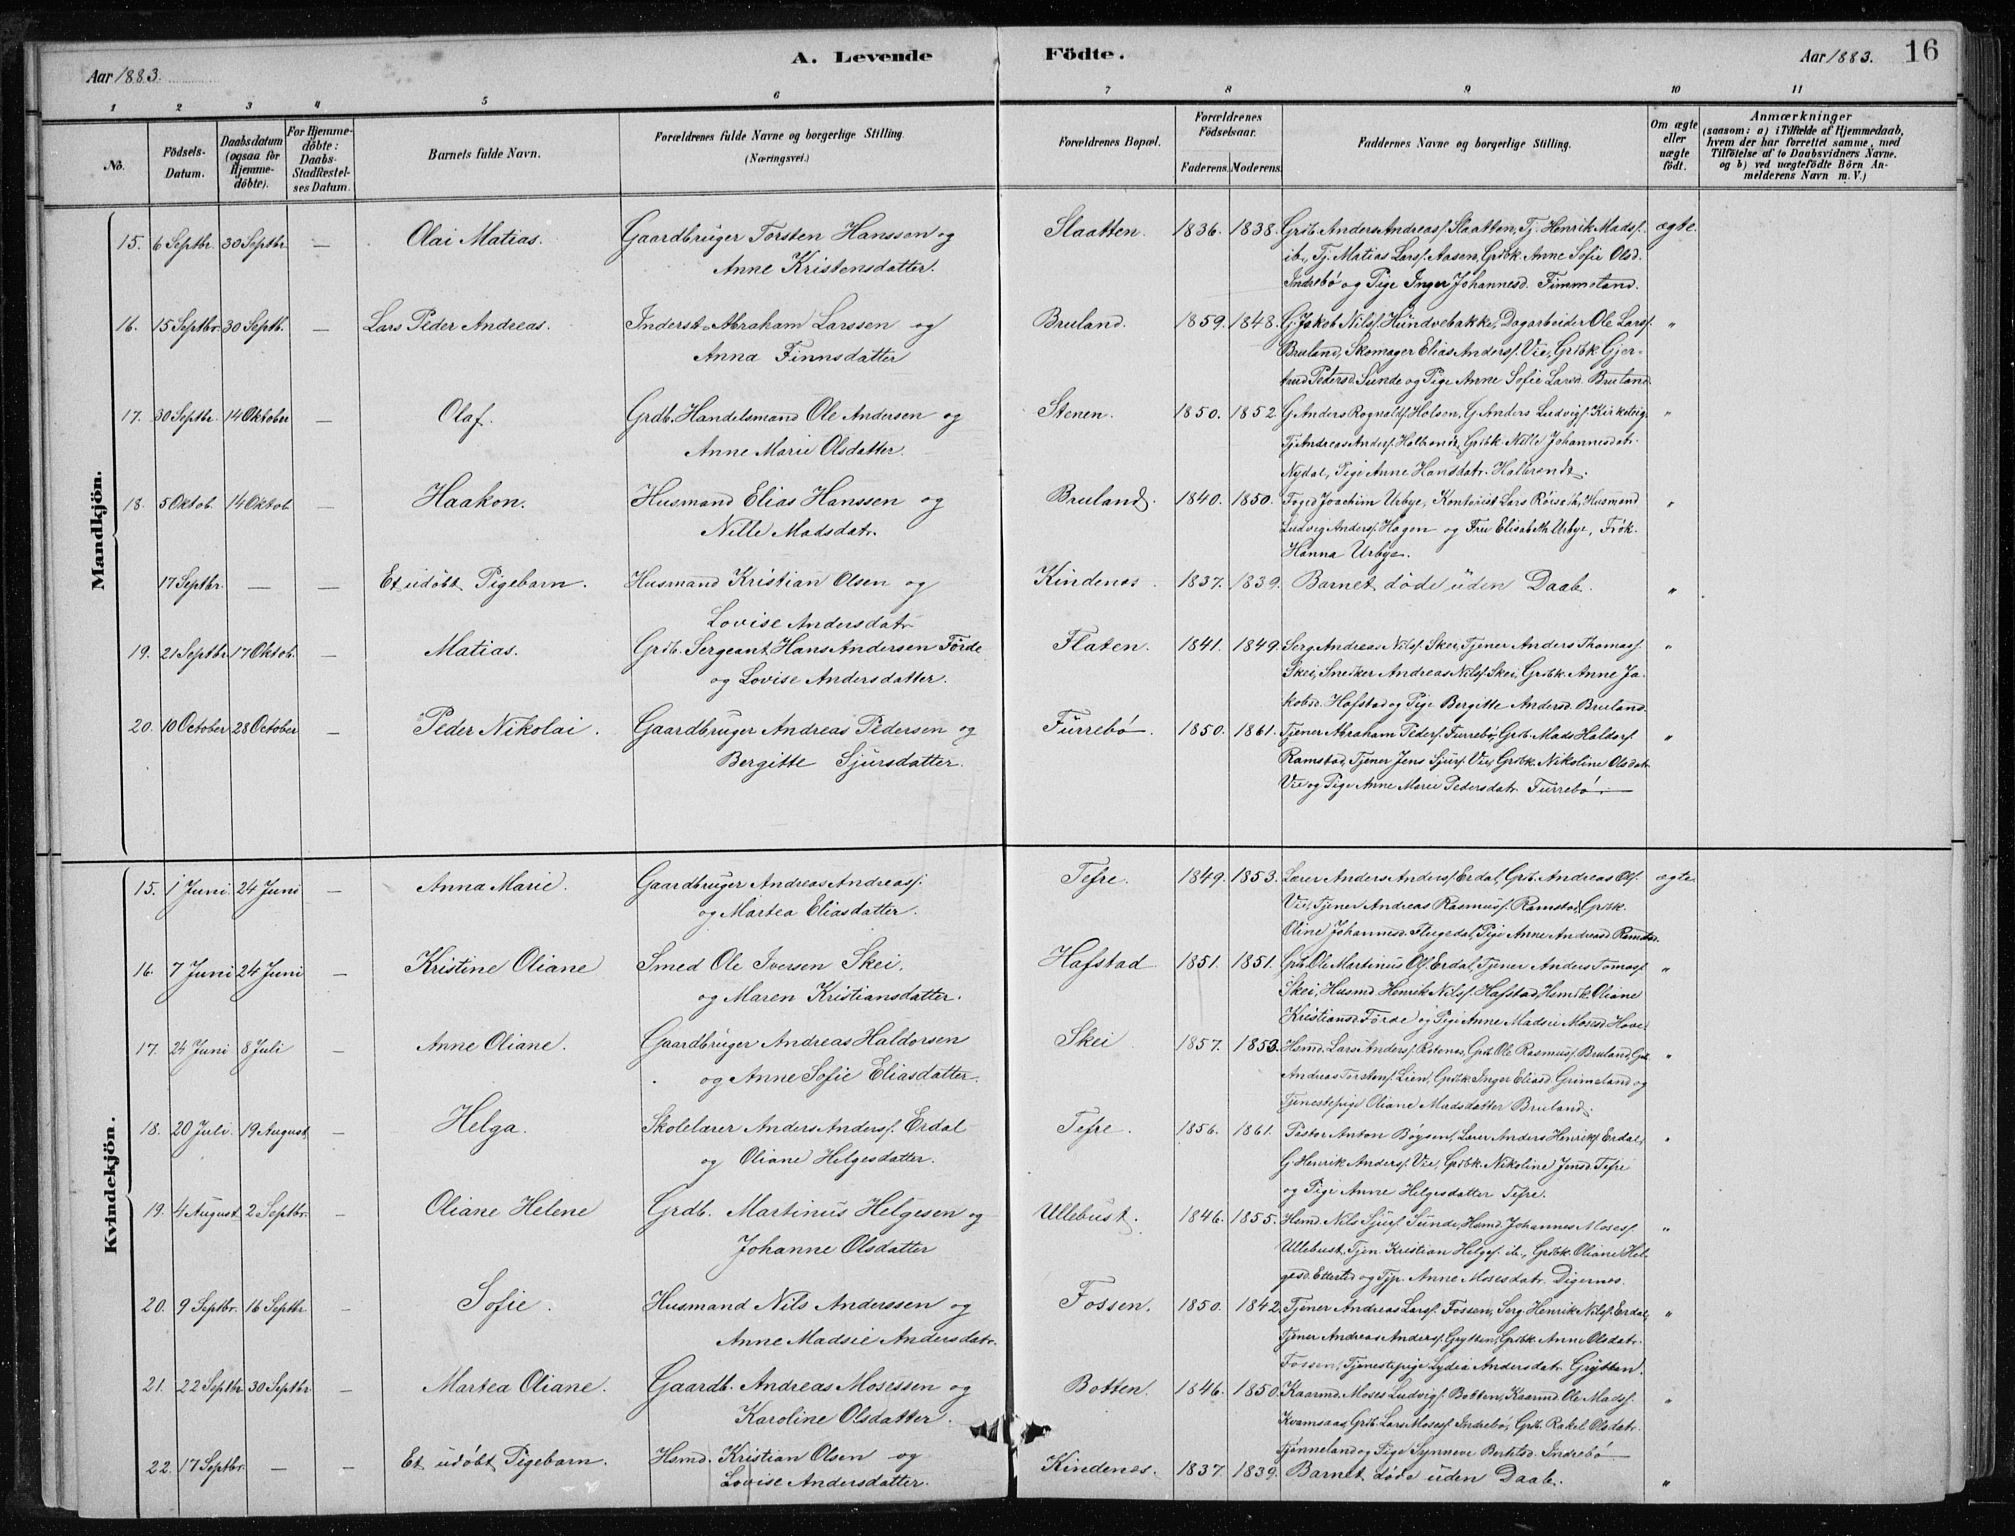 Aar 1883.
A. Levende
Födte.
Aar 1883.
16
1 2 3 4 5 6 7 8 9 10 11
No.
Födsels-Datum.
Daabsdatum (ogsaa for Hjemmedöbte).
For Hjemmedöbte: Daabs-Stadfæstelses Datum.
Barnets fulde Navn.
Forældrenes fulde Navne og borgerlige Stilling. (Næringsvei.)
Forældrenes Bopæl.
Forældrenes Födselsaar.
Faderens. Moderens.
Faddernes Navne og borgerlige Stilling.
Om ægte eller uægte födt.
Anmærkninger
(saasom: a) i Tilfælde af Hjemmedaab, hvem der har forrettet samme, med Tilföielse af to Daabsvidners Navne. og b) ved uægtefödte Börn Anmelderens Navn m. V.)
Mandkjön.
15. 6 Septbr. 30 Septbr. — Olai Matias. Gaardbruger Torsten Hanssen og Slaatten. 1836. 1838. Grdb. Anders Andreasf. Slaatten, Tj. Henrik Madsf. ægte.
Anne Kristensdatter. ib., Tj. Matias Larsf. Aasen, Grdbk. Anne Sofie Olsd.
Indrebø og Pige Inger Johannesd. Fimmeland.
16. 15 Septbr. 30 Septb. — Lars Peder Andreas. Inderst Abraham Larssen og Bruland. 1859. 1848. G. Jakob Nilsf. Hundvebakke, Dagarbeider Ole Larsf. "
Anna Finnsdatter Bruland, Skomager Elias Andersf. Vie, Grdbk. Gjer-
trud Pedersd. Sunde og Pige Anne Sofie Larsd. Bruland.
17. 30 Septbr. 14 Oktober — Olaf. Grdb. Handelsmand Ole Andersen og Stenen. 1850. 1852. G. Anders Rognaldsf. Holsen, G. Anders Ludvigf. Kirketeig "
Anne Marie Olsdatter. Tj. Andreas Andersf. Halbrend, Grdbk. Nille Johannesdatr.
Nydal, Pige Anne Hansdatr. Halbrend.
18. 5 Oktob. 14 Oktob. — Haakon. Husmand Elias Hanssen og Bruland. 1840. 1850. Foged Joachim Urbye, Kontorist Lars Röiseth, Husmand "
Nille Madsdatr. Ludvig Andersf. Hagen og Fru Elisabeth Urbye, Frøk.
Hanna Urbye.
17 Septbr. — — Et udöbt Pigebarn. Husmand Kristian Olsen og Kindenes. 1837. 1839. Barnet døde uden Daab. "
Lovise Andersdatr.
19. 21 Septbr. 17 Oktob. — Matias. Grdb. Sergeant Hans Andersen Förde Flaten. 1841. 1849. Serg. Andreas Nilsf. Skei, Tjener Anders Thomasf. "
og Lovise Andersdatter. Skei, Snedker Andreas Nilsf. Skei, Grdbk. Anne Ja-
kobsd. Hafstad og Pige Bergitte Andersd. Bruland.
20. 10 October 28 October — Peder Nikolai. Gaardbruger Andreas Pedersen og Furrebø. 1850. 1861. Tjener Abraham Pedersf. Furrebø, Grdb. Mads Haldorsf. "
Bergitte Sjursdatter. Ramstad, Tjener Jens Sjursf. Vie, Grdbk. Nikoline Olsdatr.
Vie og Pige Anne Marie Pedersdatr. Furrebø.
Kvindekjön.
15. 1 Juni. 24 Juni — Anna Marie. Gaardbruger Andreas Andreasf. Tefre. 1849. 1853. Lærer Anders Andersf. Erdal, Grdb. Andreas Olsf. ægte
og Martea Eliasdatter. Vie, Tjener Andreas Rasmusf. Ramstad, Grdbk.
Oline Johannesd. Flugedal, Pige Anne Andreasd. Ramstad.
16. 7 Juni 24 Juni — Kristine Oliane Smed Ole Iversen Skei. Hafstad 1851. 1851. Grdb. Ole Martinus Olsf. Erdal, Tjener Anders Tomasf. "
og Maren Kristiansdatter. Skei, Husmd. Henrik Nilsf. Hafstad, Hsmdk. Oliane
Kristiansd. Førde og Pige Anne Madsie Mosesd. Hove.
17. 24 Juni 8 Juli — Anne Oliane. Gaardbruger Andreas Haldorsen Skei 1857. 1853. Hsmd. Lars Andersf. Rotenes, Grdb. Ole Rasmusf. Bruland, Grdb. "
og Anne Sofie Eliasdatter. Andreas Torstensf. Lien, Grdbk. Inger Eliasd. Grimeland og
Tjenestepige Oliane Madsdatter Bruland.
18. 20 Juli. 19 August — Helga. Skolelærer Anders Andersf. Erdal Tefre. 1856. 1861. Pastor Anton Bøysen, Lærer Anders Henriksf. Erdal, "
og Oliane Helgesdatter. G. Henrik Andersf. Vie, Grdbk. Nikoline Jensd. Tefre
og Pige Anne Helgesdatter Tefre.
19. 4 August 2 Septbr. — Oliane Helene Grdb. Martinus Helgesen og Ullebust. 1846. 1855. Hsmd. Nils Sjursf. Sunde, Hsmd. Johannes Mosesf. "
Johanne Olsdatter Ullebust, Tjen. Kristian Helgesf. ib., Grdbk. Oliane Hel-
gesd. Ettersted og Tjp. Anne Mosesdatr. Digernes.
20. 9 Septbr. 16 Septbr. — Sofie. Husmand Nils Anderssen og Fossen. 1850. 1842. Tjener Andreas Larsf. Fossen, Serg. Henrik Nilsf. Erdal, "
Anne Madsie Andersdatr. Tjener Andreas Andersf. Grytten, Grdbk. Anne Olsdatr.
Fossen, Tjenestepige Lydia Andersdatr. Grytten.
21. 22 Septbr. 30 Septbr. — Martea Oliane. Gaardb. Andreas Mosessen og Botten. 1846. 1850. Kaarmd. Moses Ludvigf. Botten, Kaarmd. Ole Madsf. "
Karoline Olsdatter. Kvamsaas, Grdb. Lars Mosesf. Indrebø, Grdb. Rakel Olsdatr.
Tjønneland og Pige Synneve Indrebø
22. 17 Septbr. — — Et udöbt Pigebarn. Hsmd. Kristian Olsen og Kindenes. 1837. 1839. Barnet døde uden Daab. "
Lovise Andersdatter.